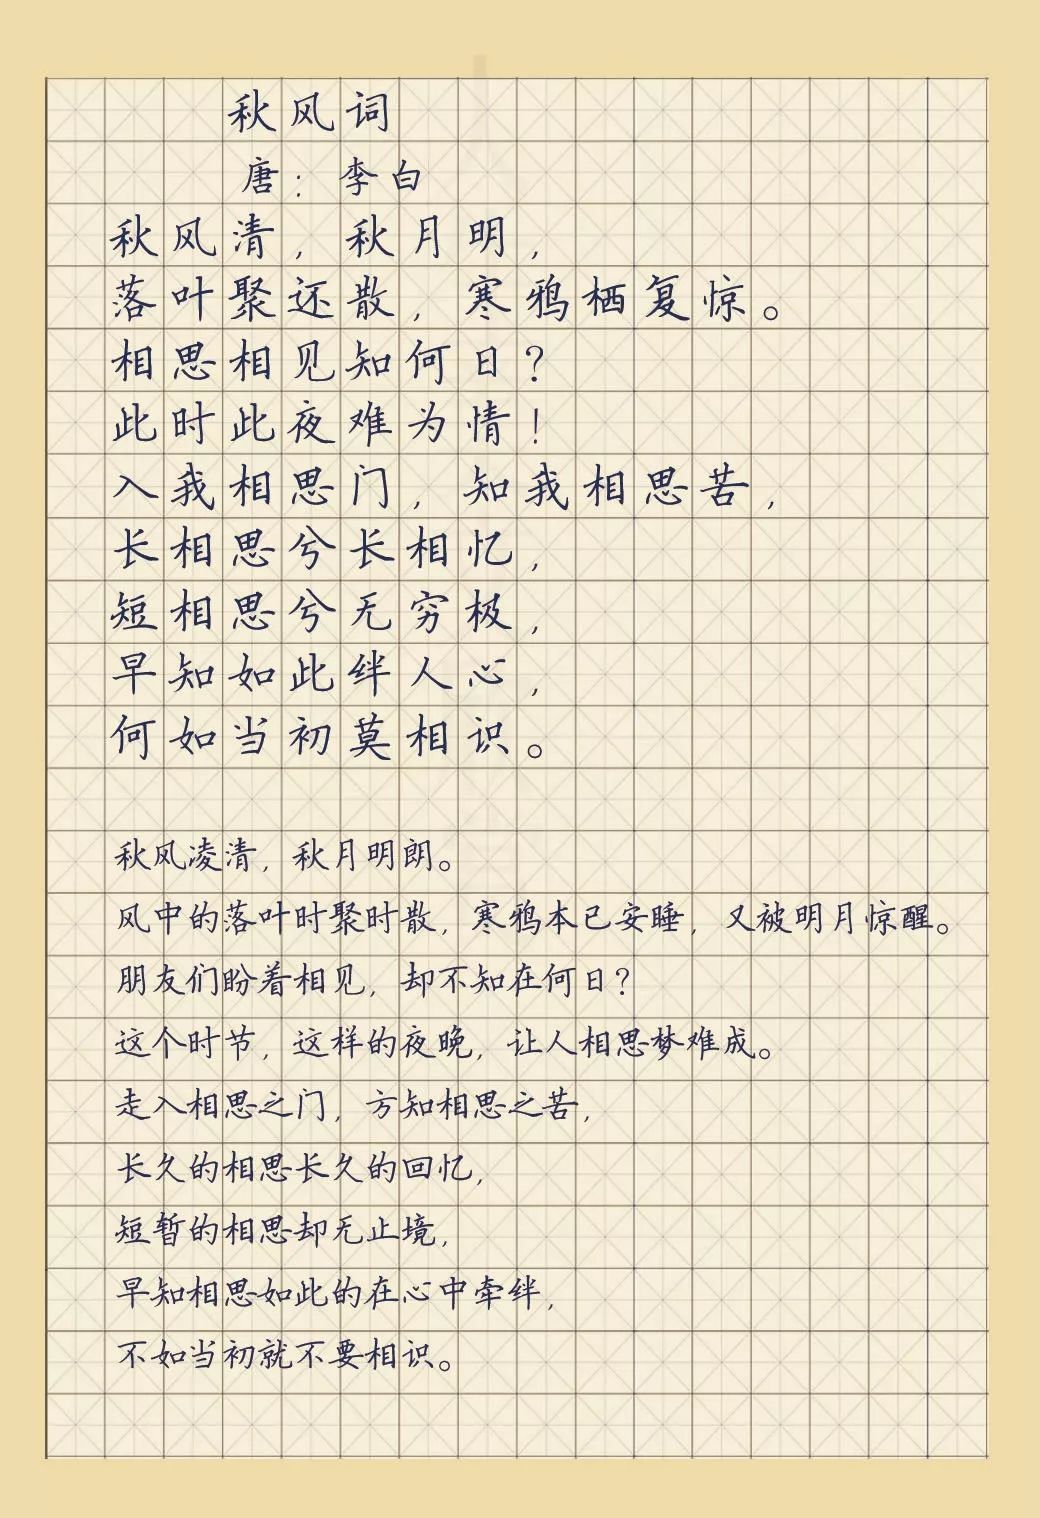 秋风词
唐：李白
秋风清，秋月明，
落叶聚还散，寒鸦栖复惊。
相思相见知何日？
此时此夜难为情！
入我相思门，知我相思苦，
长相思兮长相忆，
短相思兮无穷极，
早知如此绊人心，
何如当初莫相识。
秋风凌清，秋月明朗。
风中的落叶时聚时散，寒鸦本已安睡，又被明月惊醒。
朋友们盼着相见，却不知在何日？
这个时节，这样的夜晚，让人相思梦难成。
走入相思之门，方知相思之苦，
长久的相思长久的回忆，
短暂的相思却无止境，
早知相思如此的在心中牵绊，
不如当初就不要相识。